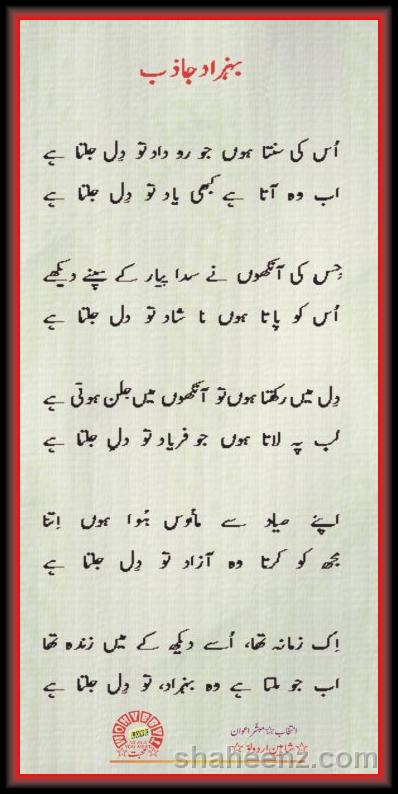 بہزاد جاذب
اُس کی سنتا ہوں جو روداد تو دِل جلتا ہے
اب وہ آتا ہے کبھی یاد تو دِل جلتا ہے
جِس کی آنکھوں نے سدا پیار کے سپنے دیکھے
اُس کو پاتا ہوں نا شاد تو دل جلتا ہے
دِل میں رکھتا ہوں تو آنکھوں میں جلن ہوتی ہے
لب پہ لاتا ہوں جو فریاد تو دل جلتا ہے
اپنے صیاد سے مانوس ہُوا ہوں اِتنا
مجھ کو کرتا وہ آزاد تو دِل جلتا ہے
اِک زمانہ تھا، اُسے دیکھ کے میں زندہ تھا
اب جو ملتا ہے وہ بہزاد، تو دِل جلتا ہے
انتخاب ☆ مبشر اعوان
☆ شاہین اردو ☆
محبت
shaheenz.com